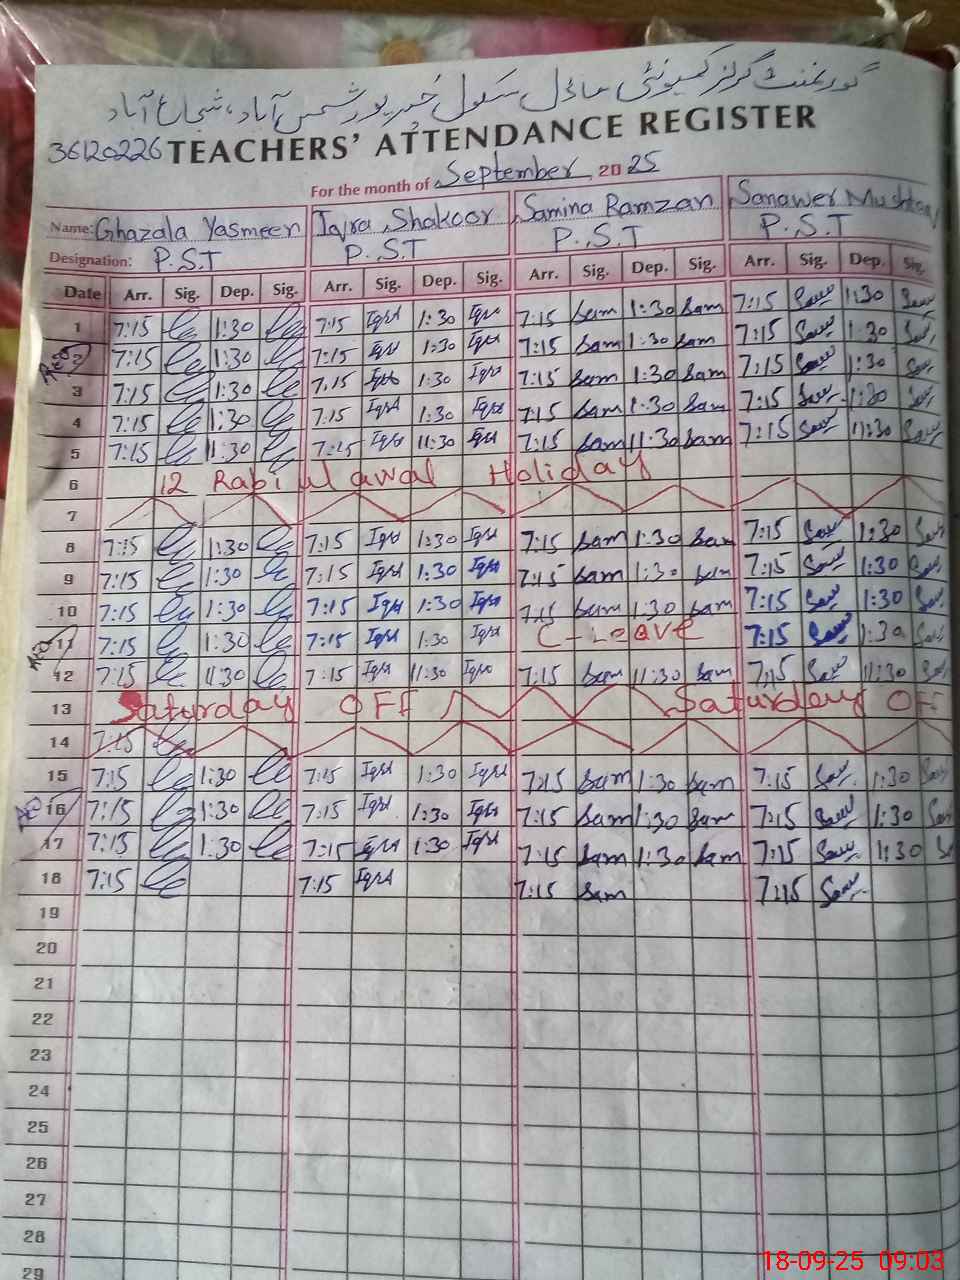 گورنمنٹ گرلز کمیونٹی ماڈل سکول خیرپور شمس آباد، شجاع آباد
36120226 TEACHERS' ATTENDANCE REGISTER
For the month of September 2025
Name: Ghazala Yasmeen Iqra Shakoor Samina Ramzan Sanawer Mushtaq
Designation: P.S.T P.S.T P.S.T P.S.T
Date Arr. Sig. Dep. Sig. Arr. Sig. Dep. Sig. Arr. Sig. Dep. Sig. Arr. Sig. Dep. Sig.
1 7:15 1:30 7:15 Iqra 1:30 Iqra 7:15 Sam 1:30 Sam 7:15 Saw 1:30 Saw
2 7:15 1:30 7:15 Iqra 1:30 Iqra 7:15 Sam 1:30 Sam 7:15 Saw 1:30 Saw
3 7:15 1:30 7:15 Iqra 1:30 Iqra 7:15 Sam 1:30 Sam 7:15 Saw 1:30 Saw
4 7:15 1:30 7:15 Iqra 1:30 Iqra 7:15 Sam 1:30 Sam 7:15 Saw 1:30 Saw
5 7:15 11:30 7:15 Iqra 11:30 Iqra 7:15 Sam 11:30 Sam 7:15 Saw 11:30 Saw
6 12 Rabi ul awal Holiday
7
8 7:15 1:30 7:15 Iqra 1:30 Iqra 7:15 Sam 1:30 Sam 7:15 Saw 1:30 Saw
9 7:15 1:30 7:15 Iqra 1:30 Iqra 7:15 Sam 1:30 Sam 7:15 Saw 1:30 Saw
10 7:15 1:30 7:15 Iqra 1:30 Iqra 7:15 Sam 1:30 Sam 7:15 Saw 1:30 Saw
11 7:15 1:30 7:15 Iqra 1:30 Iqra C-Leave 7:15 Saw 1:30 Saw
12 7:15 11:30 7:15 Iqra 11:30 Iqra 7:15 Sam 11:30 Sam 7:15 Saw 11:30 Saw
13 Saturday OFF Saturday OFF
14 7:15
15 7:15 1:30 7:15 Iqra 1:30 Iqra 7:15 Sam 1:30 Sam 7:15 Saw 1:30 Saw
16 7:15 1:30 7:15 Iqra 1:30 Iqra 7:15 Sam 1:30 Sam 7:15 Saw 1:30 Saw
17 7:15 1:30 7:15 Iqra 1:30 Iqra 7:15 Sam 1:30 Sam 7:15 Saw 1:30
18 7:15 7:15 Iqra 7:15 Sam 7:15 Saw
19
20
21
22
23
24
25
26
27
28
29
18-09-25 09:03